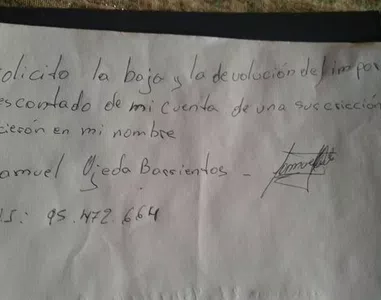 olicito la baja y la devolución del impor
escontado de mi cuenta de una suscrición
cieron en mi nombre
amuel Ojeda Barrientos -
I: 95.472.664